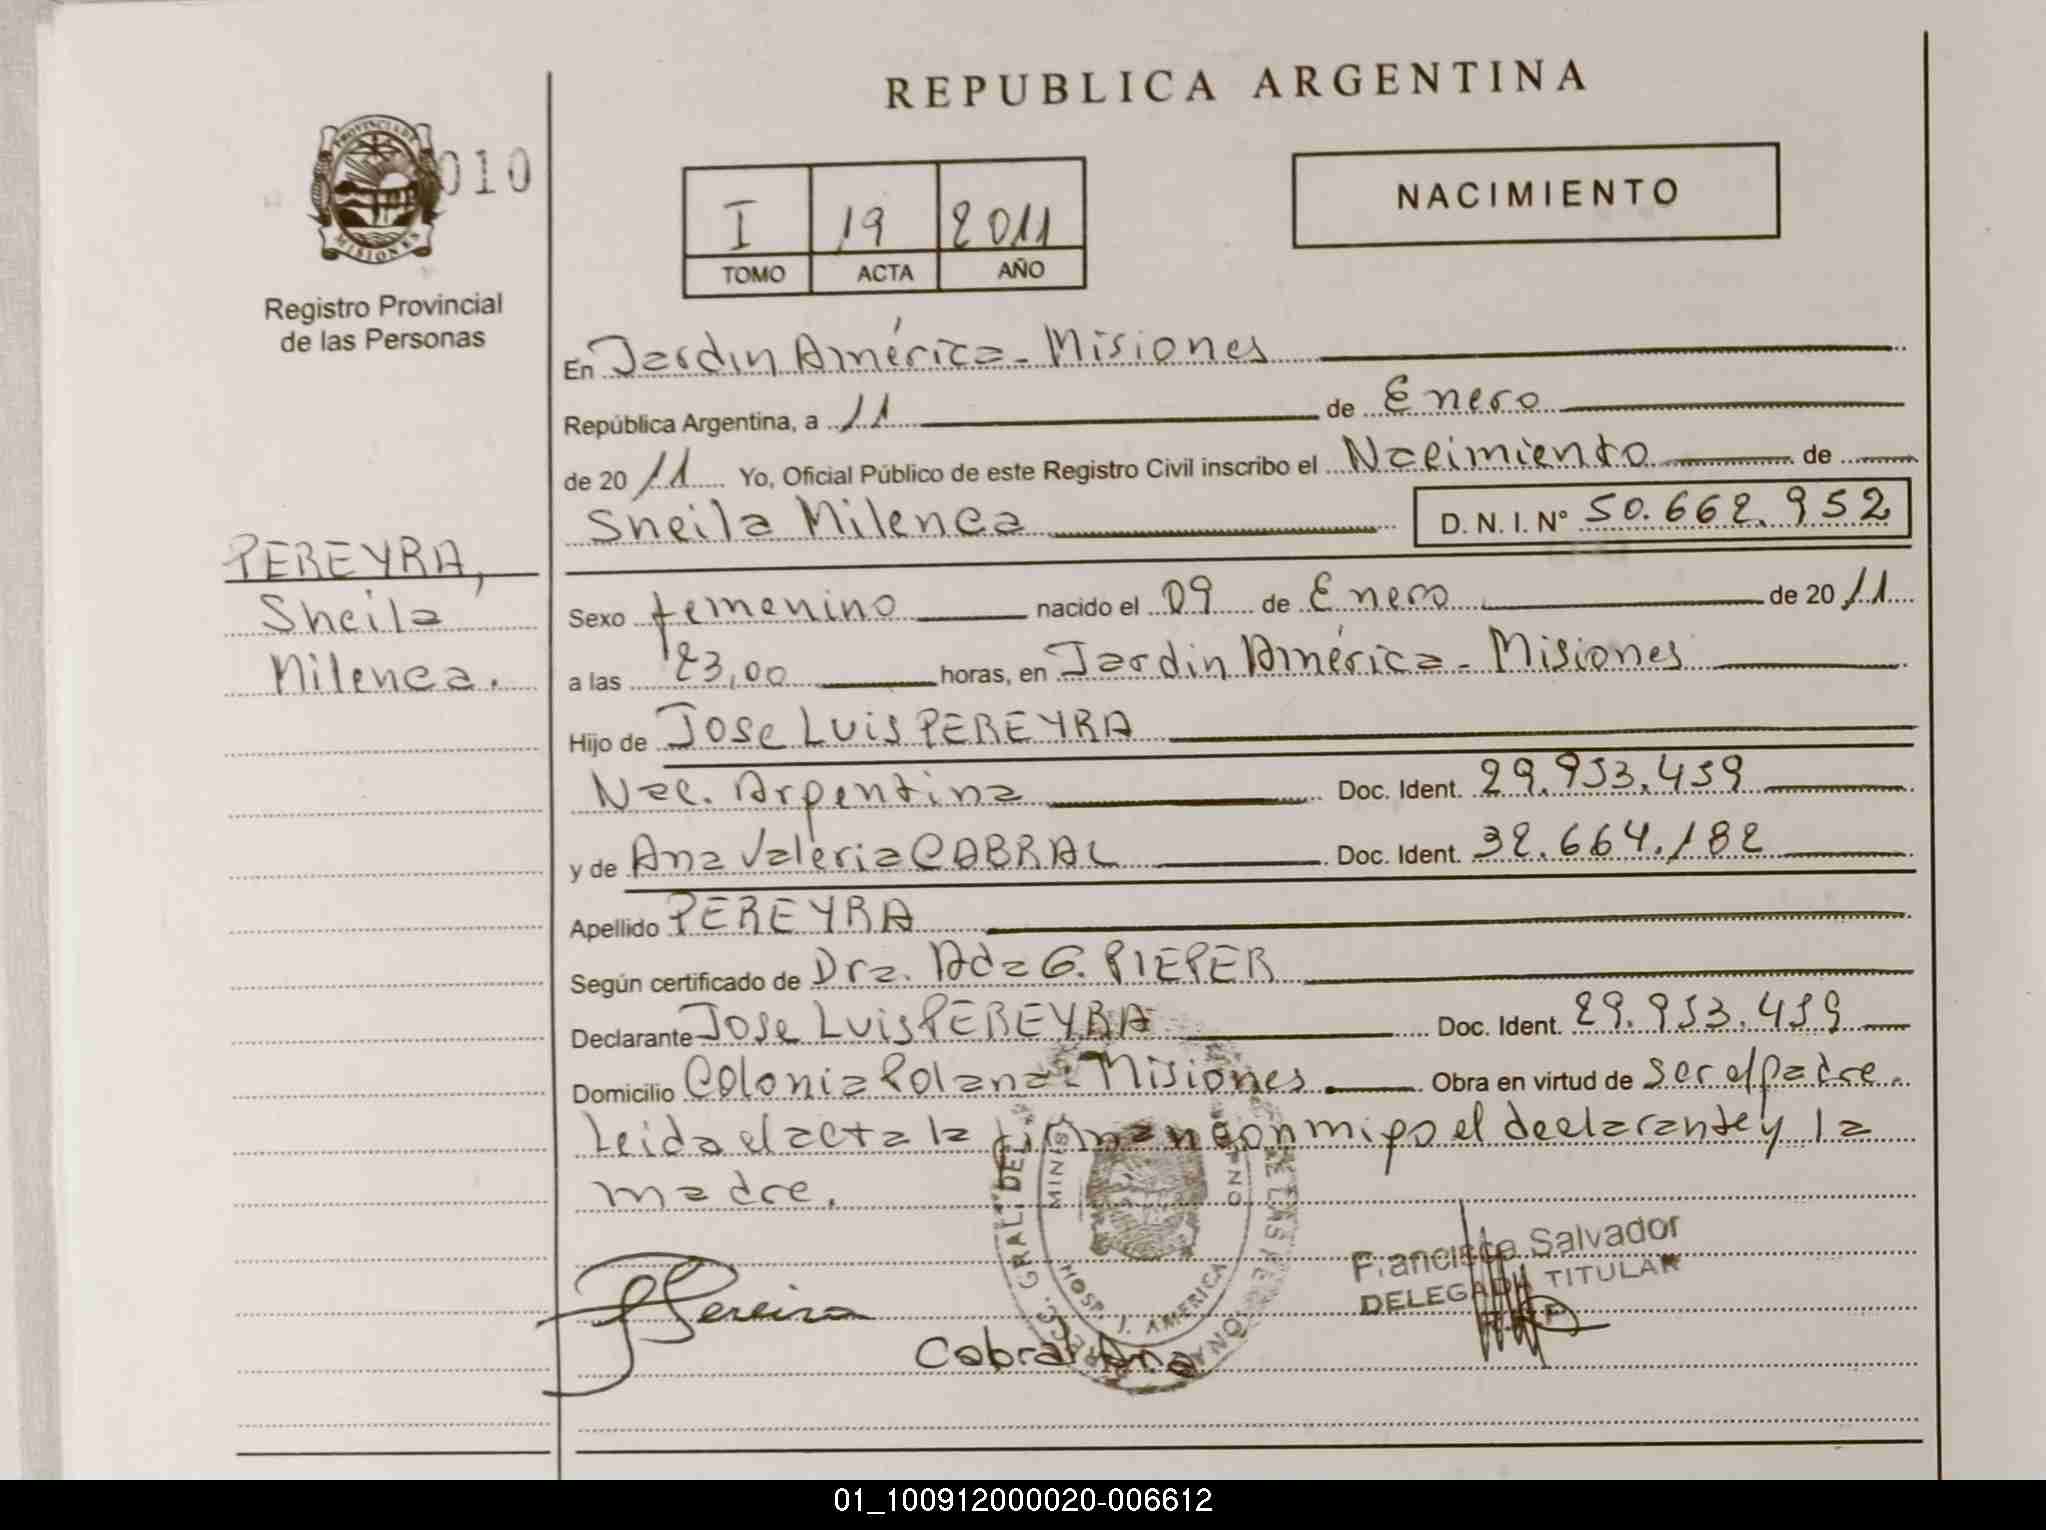 REPUBLICA ARGENTINA
PROVINCIA DE
MISIONES
010
Registro Provincial
de las Personas
I 19 2011
TOMO ACTA AÑO
NACIMIENTO
En Jardín América - Misiones
República Argentina, a 11 de Enero
de 2011 Yo, Oficial Público de este Registro Civil inscribo el Nacimiento de
Sheila Milenca D. N. I. Nº 50.662.952
PEREYRA,
Sheila
Milenca.
Sexo femenino nacido el 09 de Enero de 2011
a las 23,00 horas, en Jardin América - Misiones
Hijo de Jose Luis PEREYRA
Nac. Argentina Doc. Ident. 29.953.459
y de Ana Valeria CABRAL Doc. Ident. 32.664.182
Apellido PEREYRA
Según certificado de Dra. Ada G. PIEPER
Declarante Jose Luis PEREYRA Doc. Ident. 29.953.459
Domicilio Colonia Polana - Misiones Obra en virtud de ser el padre.
Leida el acta la firman conmigo el declarante y la
madre.
GRAL. DEL
HOSP. J. AMERICA
Francisco Salvador
DELEGADO TITULAR
Pereira
Cabral Ana
01_100912000020-006612